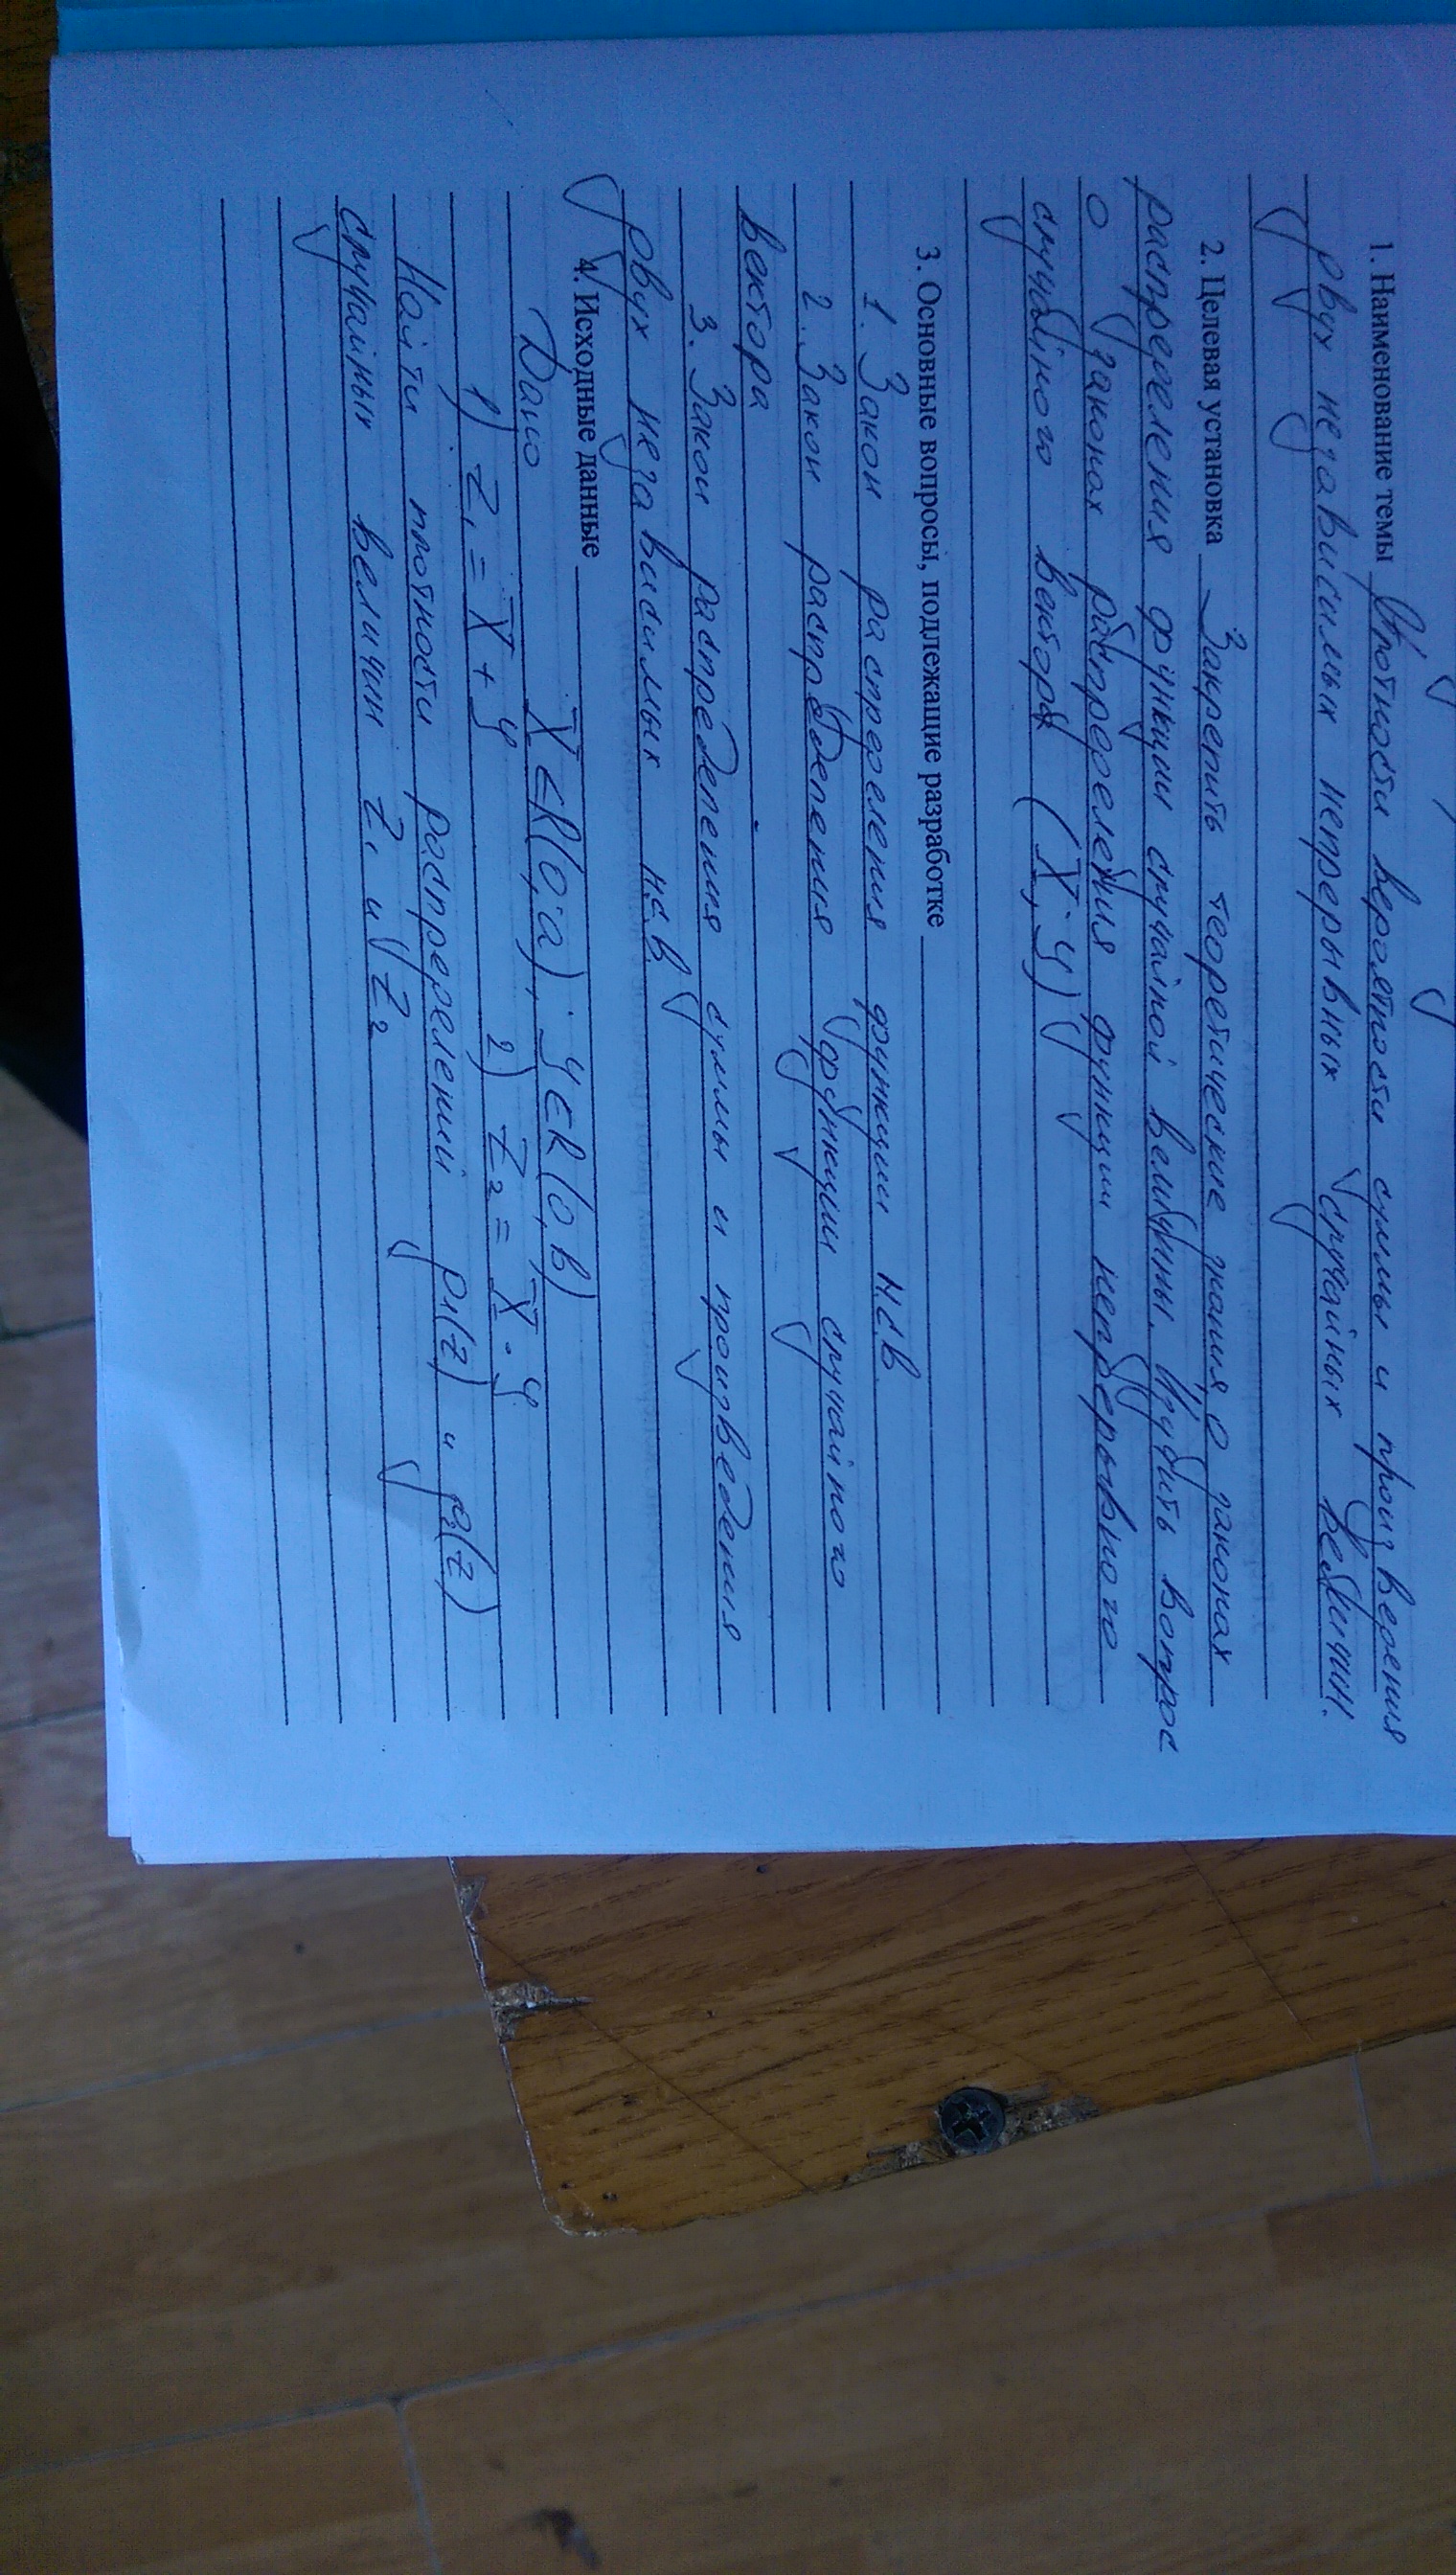 1. Наименование темы Плотности вероятности суммы и произведения
двух независимых непрерывных случайных величин.
2. Целевая установка Закрепить теоретические знания о законах
распределения функции случайной величины. Изучить вопрос
о законах распределения функции непрерывного
случайного вектора (X, Y)
3. Основные вопросы, подлежащие разработке
1. Закон распределения функции н.с.в.
2. Закон распределения функции случайного
вектора
3. Закон распределения суммы и произведения
двух независимых н.с.в.
4. Исходные данные
Дано X ∈ R(0, a); Y ∈ R(0, b)
1) Z₁ = X + Y 2) Z₂ = X · Y
Найти плотности распределений p₁(z) и p₂(z)
случайных величин Z₁ и Z₂